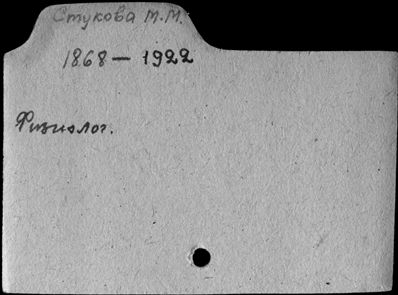 Стукова М.М.
1868 — 1922
Физиолог.